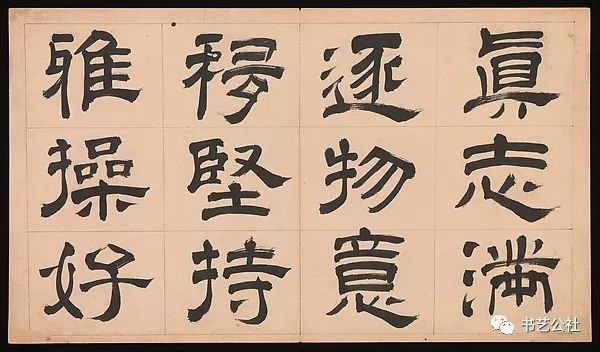 眞志滿
逐物意
移堅持
雅操好
书艺公社